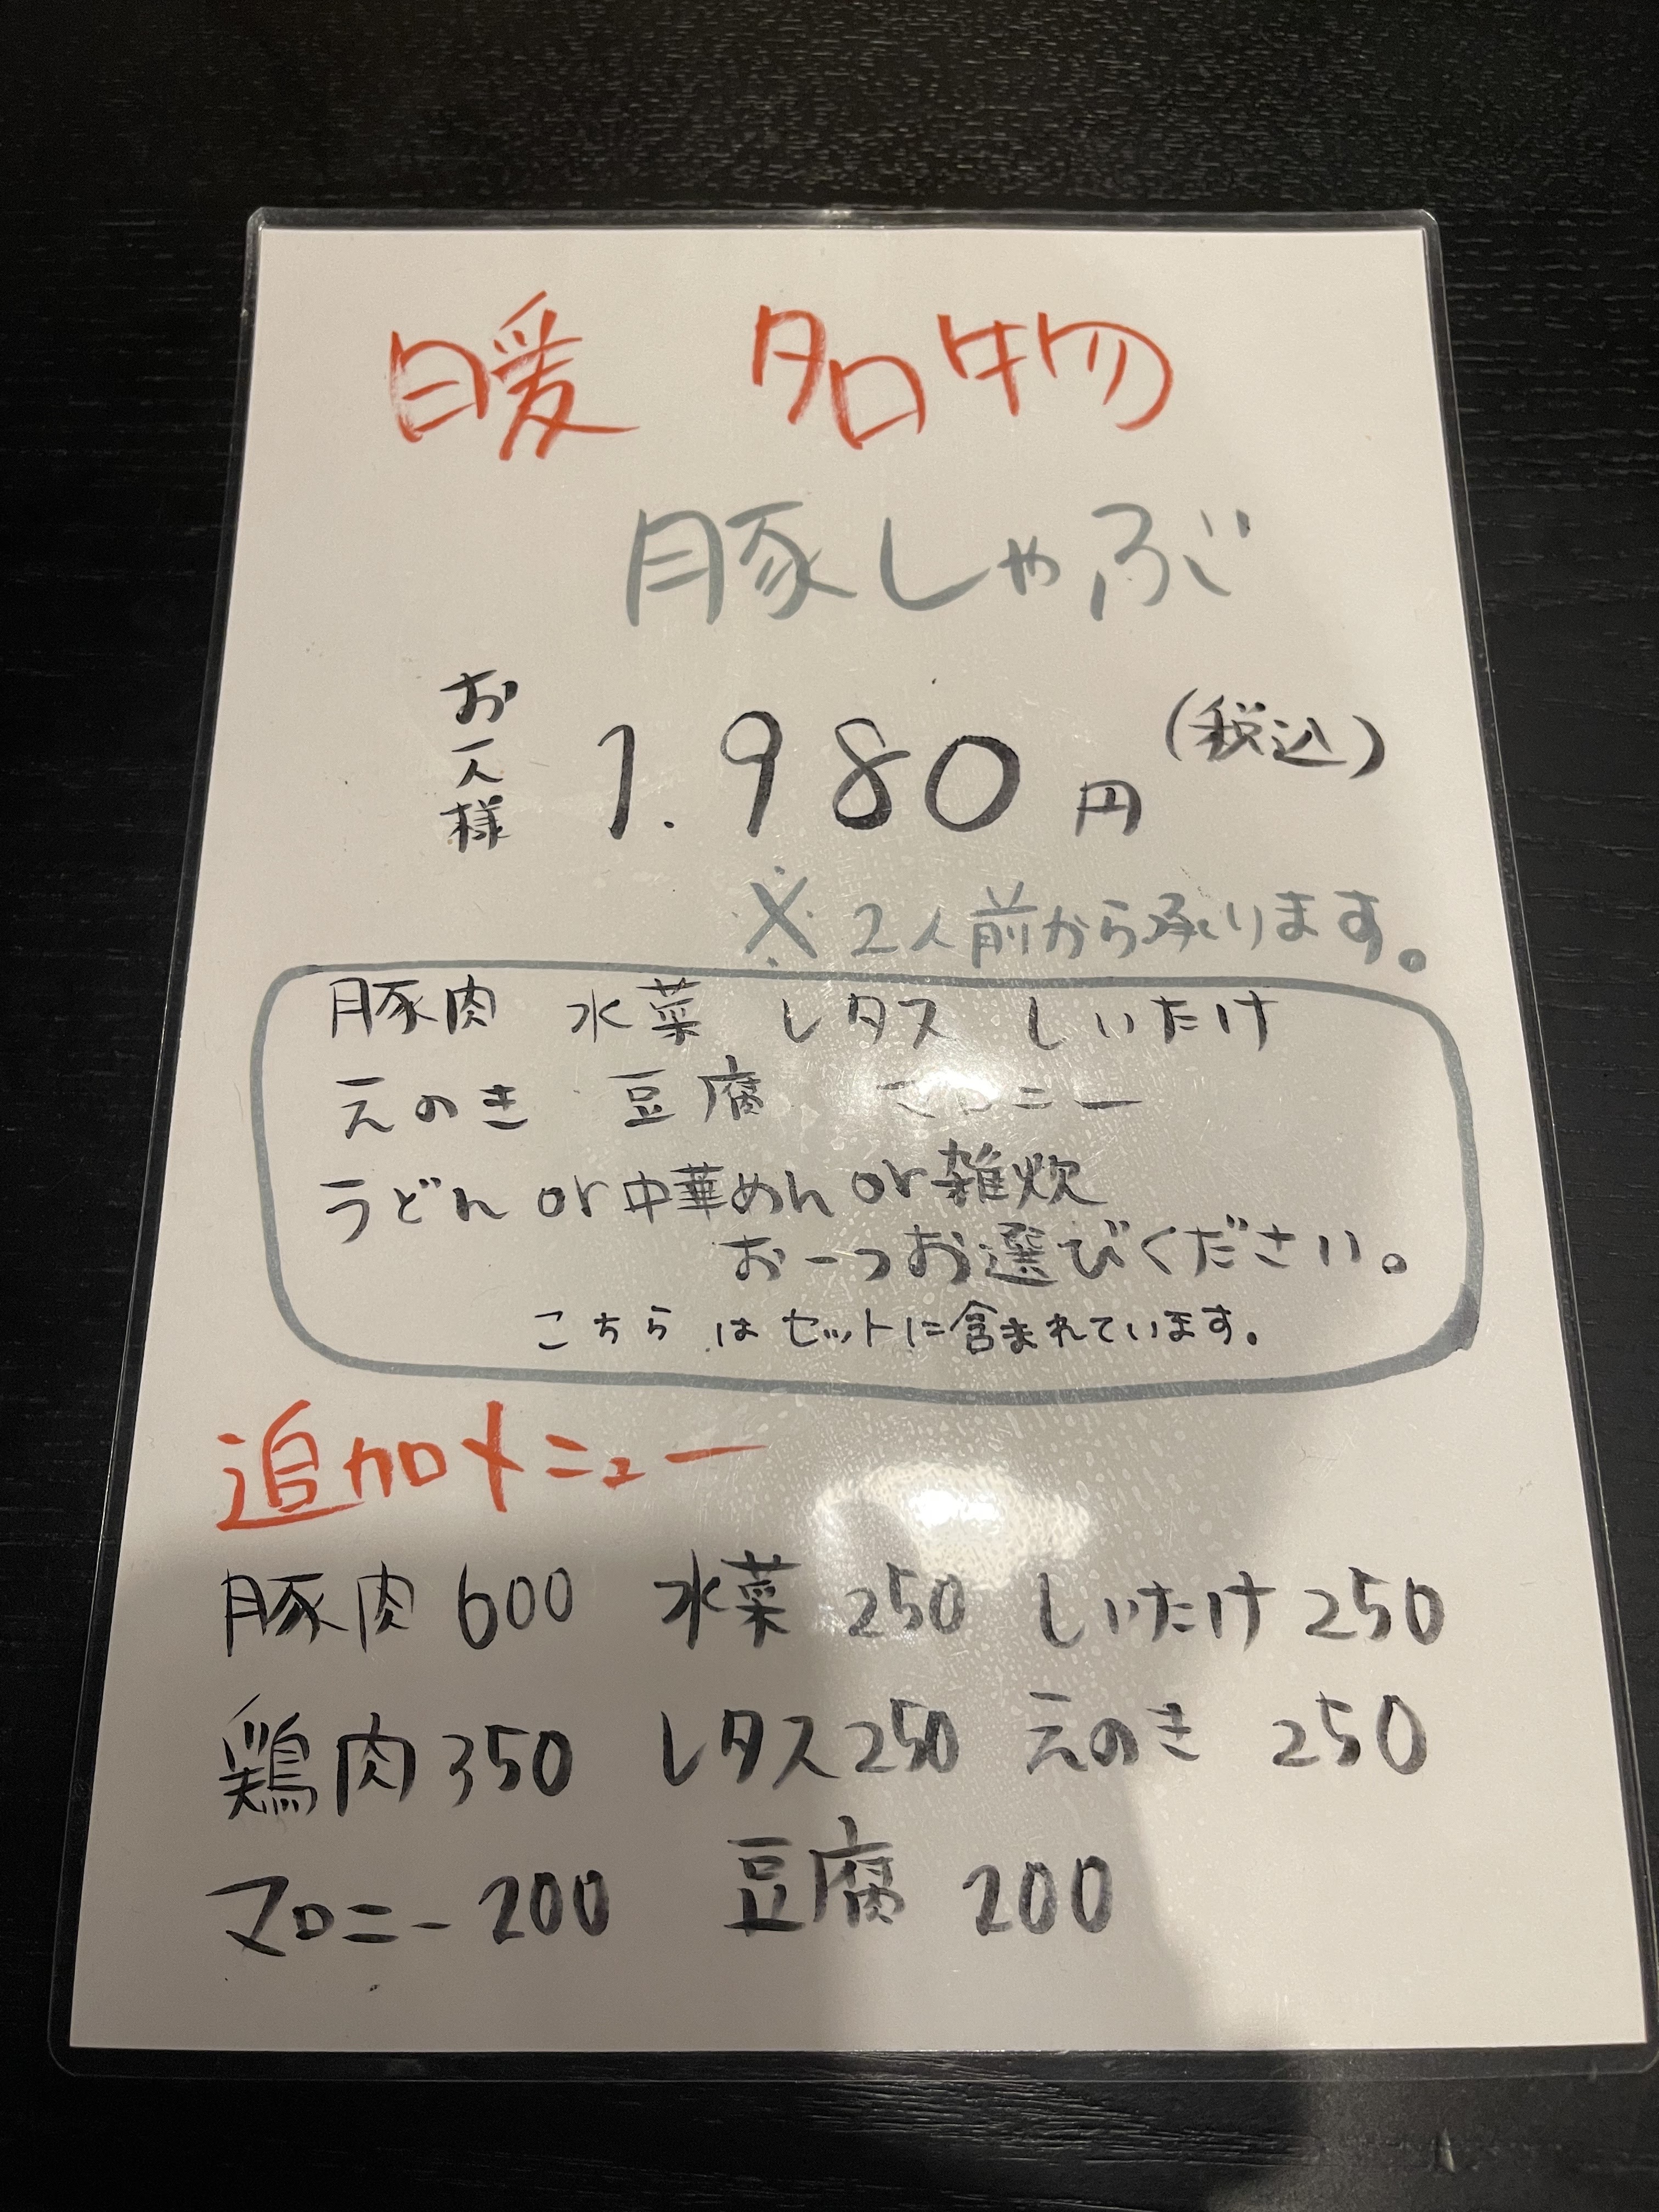 暖 名物
豚しゃぶ
お一人様 1.980円(税込)
※2人前から承ります。
豚肉 水菜 レタス しいたけ
えのき 豆腐 マロニー
うどん or 中華めん or 雑炊
お一つお選びください。
こちらはセットに含まれています。
追加メニュー
豚肉 600 水菜 250 しいたけ 250
鶏肉 350 レタス 250 えのき 250
マロニー 200 豆腐 200